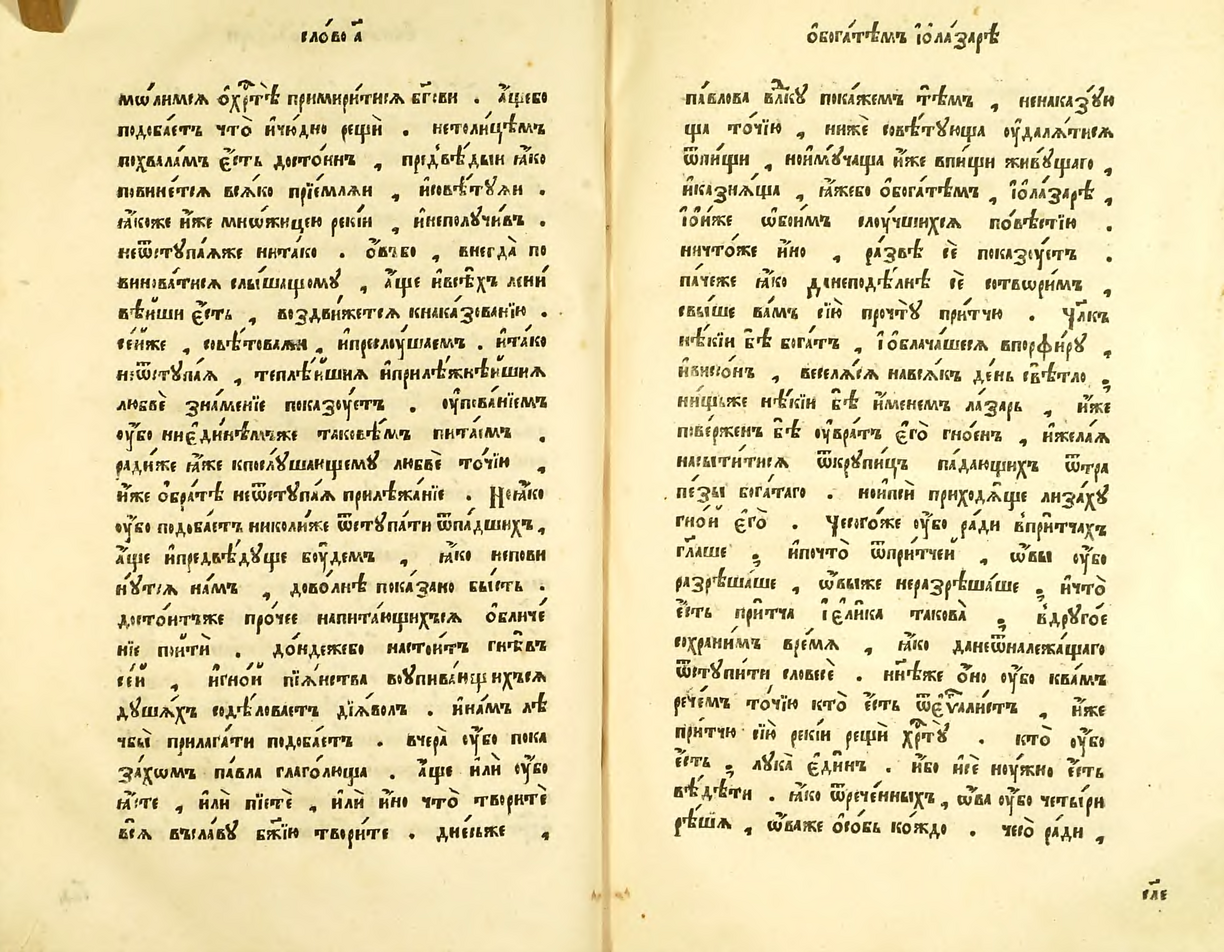 сло́во а҃
мѡ́лимсѧ ѻ҆хрⷭ҇тѣ̀ примири́тисѧ бг҃ови . а҆́щебо
подоба́етъ что̀ и҆чю́дно рещѝ . нетоли́цѣмъ
похвала́мъ є҆́сть досто́инъ , предвѣ́дыи ꙗ҆́ко
повине́тсѧ всѧ́ко прїе́млѧи , и҆совѣ́тꙋѧи .
ꙗ҆́коже и҆́же мнѡ́жицею реки́и , и҆неполучи́въ .
неѿстꙋпа́ѧже нитако . ѻ҆́въбо , внегда̀ по
винова́тисѧ слы́шащомꙋ , а҆́ще и҆всѣ́хъ лени
вѣ́иши є҆́сть , воздви́жетсѧ кнаказова́нїю .
се́иже , совѣ́товаѧи , и҆преслоу́шаемъ . и҆та́ко
неѿстꙋпа́ѧ , теплѣ́ишиѧ и҆прилѣ́жнѣишиѧ
любвѐ зна́менїе показоу́етъ . оу҆пова́нїемъ
оу҆́бо ниє҆ди́нѣмъже таковѣ́мъ пита́емъ .
ра́диже ꙗ҆́же кпослу́шающемꙋ любвѐ то́чїю ,
и҆́же ѻ҆бра́тѣ неѿстꙋпа́ѧ прилѣжа́нїе . Но꙼ꙗ҆́ко
оу҆́бо подоба́етъ николи́же ѿстꙋпа́ти ѿпа́дшихъ ,
а҆́ще и҆предвѣ́дꙋще боу́демъ , ꙗ҆́ко непови
нꙋ́тсѧ на́мъ , дово́лнѣ пока́зано бы́сть .
досто́итъже про́чее напита́ющихъсѧ ѻ҆бличе́
нїе поити́ . до́ндежебо настои́тъ гнѣ́въ
се́и , и҆гно́й пїѧ́нства воупива́ющихъсѧ
дꙋша́хъ содѣ́ловаетъ дїѧ́волъ . и҆на́мъ лѣ
чбы̀ прилага́ти подоба́етъ . вчера̀ оу҆́бо пока
за́хѡмъ па́вла глаго́люща . а҆́ще и҆лѝ оу҆́бо
ꙗ҆́сте , и҆лѝ пїе́тѐ , и҆лѝ и҆́но что̀ творитѐ
всѧ̀ въсла́вꙋ бж҃їю твори́те . дне́сьже ,
ѻ҆бога́тѣмъ і҆ѻ҆ла́зарѣ
па́влова влⷣкꙋ пока́жемъ тѣ́мъ , ненака́зꙋю
ща то́чїю , нижѐ совѣ́тꙋюща оу҆далѧ́тисѧ
ѿпи́щи , ноиму́чаща и҆́же впи́щи живꙋ́щаго ,
и҆казнѧ́ща , ꙗ҆́жебо ѻ҆бога́тѣмъ , і҆ѻ҆ла́зарѣ ,
і҆ѻ҆и҆́же ѡ҆бои́мъ слоу́чшихсѧ по́вѣстїю .
ничто́же и҆́но , ра́звѣ сѐ показоу́етъ .
па́чеже ꙗ҆́ко данеподѣ́лнѣ сѐ сотвори́мъ ,
свы́ше ва́мъ сїю̀ прочтꙋ̀ при́тчю . Чл҃къ
нѣ́кїи бѣ̀ бога́тъ , і҆ѻ҆блача́шесѧ впорфи́рꙋ ,
и҆ви́сонъ , веселѧ́сѧ навсѧ́къ де́нь свѣ́тло .
ни́щьже нѣ́кїи бѣ̀ и҆́менемъ ла́зарь , и҆́же
пове́рженъ бѣ̀ оу҆вра́тъ є҆гѡ̀ гно́енъ , и҆жела́ѧ
насы́титисѧ ѿкрупи́цъ па́дающихъ ѿтра
пе́зы бога́таго . нои҆псѝ приходѧ́ще лиза́хꙋ
гно́и є҆гѡ̀ . Чесого́же оу҆́бо ра́ди впри́тчахъ
гл҃аше ; и҆почто̀ ѿпри́тчей , ѡ҆́вы оу҆́бо
разрѣша́ше , ѡ҆́выже неразрѣша́ше ; и҆что̀
є҆́сть при́тча і҆є҆ли́ка такова̀ ; вдрꙋго́е
сохрани́мъ вре́мѧ , ꙗ҆́ко данеѿналежа́щаго
ѿстꙋпи́ти словесѐ . нн҃ѣже ѻ҆́но оу҆́бо ква́мъ
рече́мъ то́чїю кто̀ є҆́сть ѿєѵⷢ҇али́стъ , и҆́же
при́тчю сїю̀ реки́и рещѝ хрⷭ҇тꙋ̀ . кто̀ оу҆́бо
є҆́сть ; лꙋка̀ є҆ди́нъ . и҆́бо и҆сѐ ноу́жно є҆́сть
вѣ́дѣти . ꙗ҆́ко ѿрече́нныхъ , ѡ҆́ва оу҆́бо четы́ри
рѣ́шѧ , ѡ҆́важе ѻ҆со́бь ко́ждо . чего̀ ра́ди ,
єле